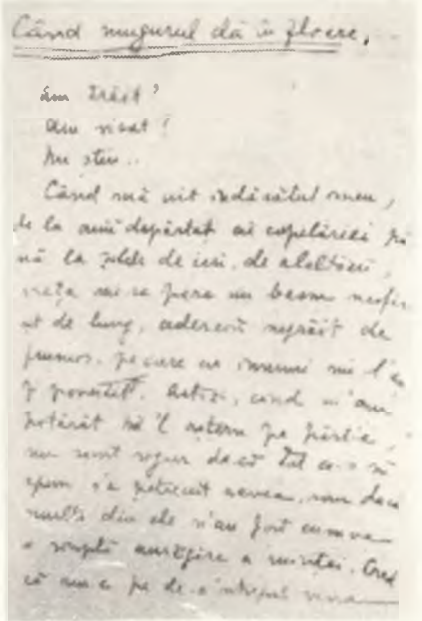 Când mugurul dă în floare.
Am trăit?
Am visat?
Nu știu..
Când mă uit îndărătul meu,
de la anii depărtați ai copilăriei pâ
nă la zilele de ieri, de alaltăieri,
viața mi se pare un basm nesfâr
șit de lung, adeseori negrăit de
frumos, pe care eu însumi mi l'aș
fi povestit. Astăzi, când m'am
hotărât să'l aștern pe hârtie,
nu sunt sigur dacă tot ce-o să
spun s'a petrecut aevea, sau dacă
multe din ele n'au fost cumva
o simplă amăgire a minții. Cred
că nu e pe de-a'ntregul vina